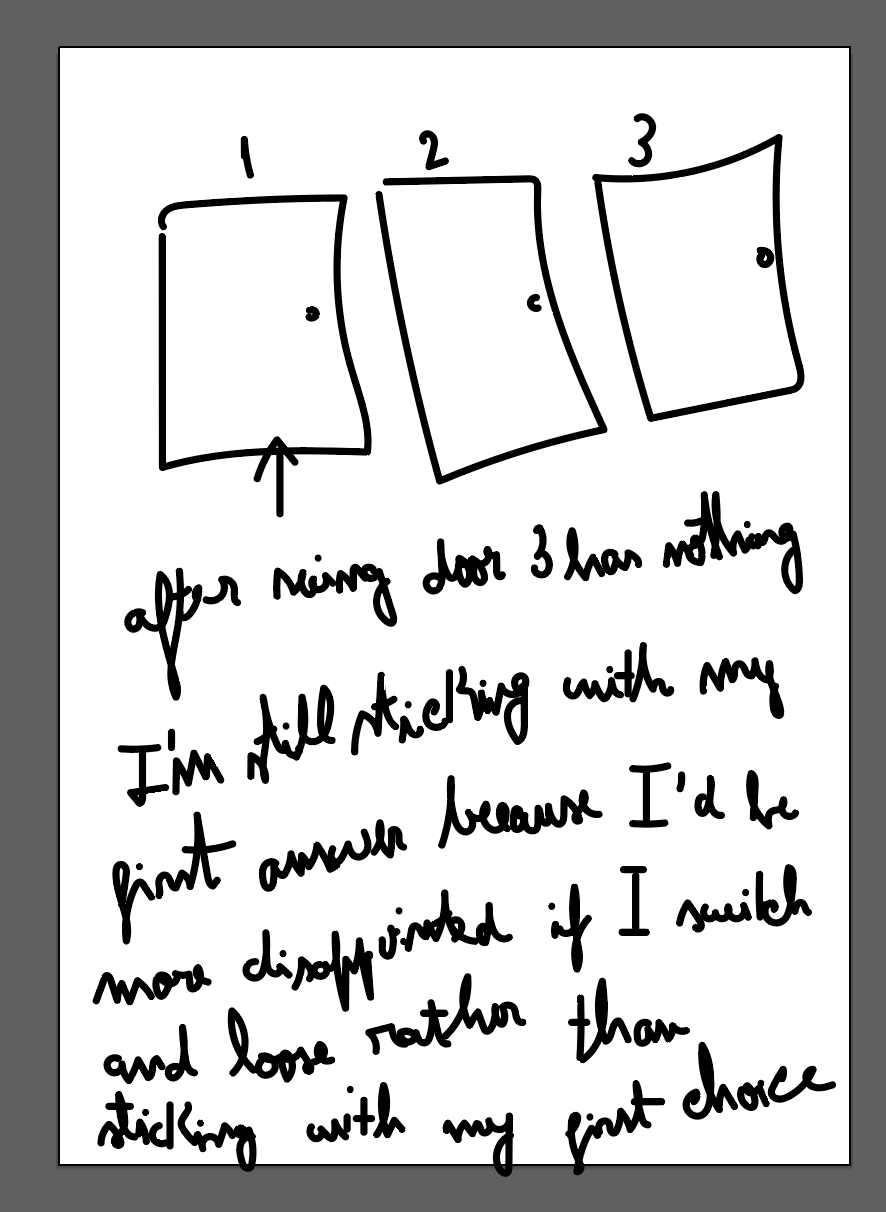 1 2 3
after seing door 3 has nothing
I'm still sticking with my
first answer because I'd be
more disappointed if I switch
and loose rather than
sticking with my first choice